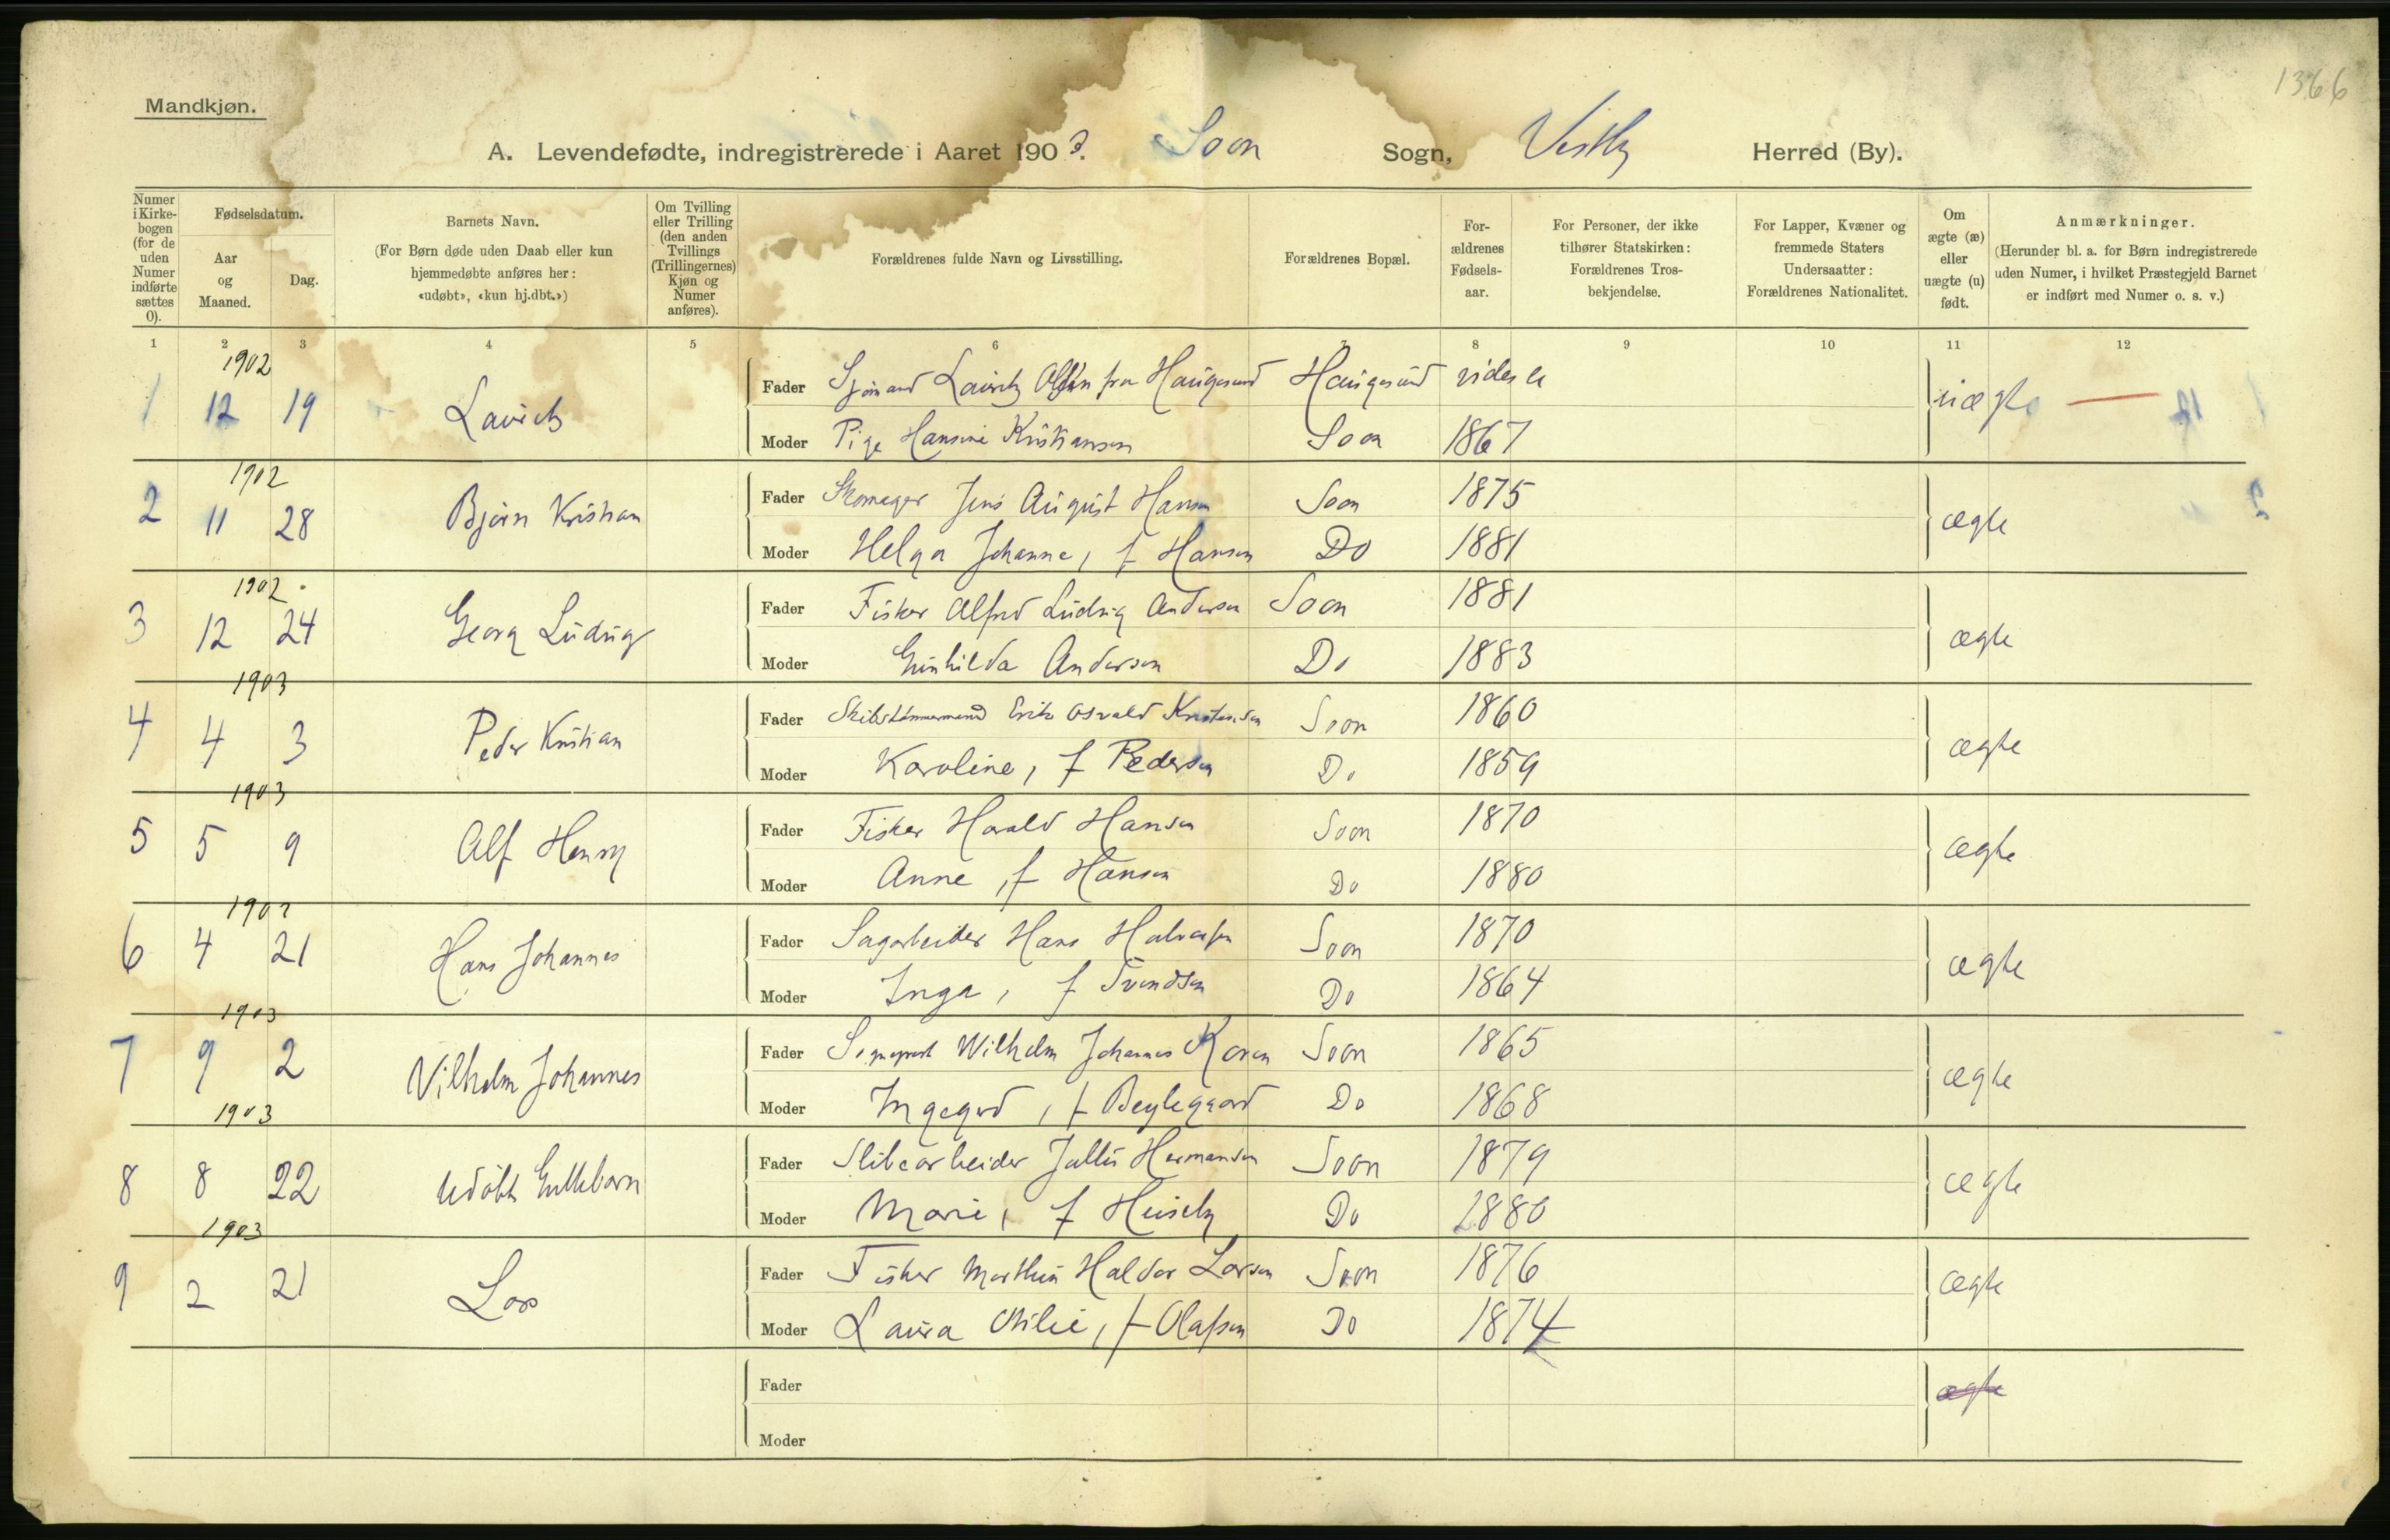 1366
Mandkjøn.
A. Levendefødte, indregistrerede i Aaret 1903. Soon Sogn, Vestby Herred (By).
Numer i Kirkebogen (for de uden Numer indførte sættes 0).
Fødselsdatum.
Aar og Maaned.
Dag.
Barnets Navn.
(For Børn døde uden Daab eller kun hjemmedøbte anføres her: «udøbt», «kun hj.dbt.»)
Om Tvilling eller Trilling (den anden Tvillings (Trillingernes) Kjøn og Numer anføres).
Forældrenes fulde Navn og Livsstilling.
Forældrenes Bopæl.
Forældrenes Fødselsaar.
For Personer, der ikke tilhører Statskirken: Forældrenes Trosbekjendelse.
For Lapper, Kvæner og fremmede Staters Undersaatter: Forældrenes Nationalitet.
Om ægte (æ) eller uægte (u) født.
Anmærkninger.
(Herunder bl. a. for Børn indregistrerede uden Numer, i hvilket Præstegjeld Barnet er indført med Numer o. s. v.)
1 2 3 4 5 6 7 8 9 10 11 12
1902
1 12 19 Lauritz Fader Sjømand Lauritz Olsen fra Haugesund Haugesund vides ei uægte —
Moder Pige Hansine Kristiansen Soon 1867
1902
2 11 28 Bjørn Kristian Fader Skomager Jens August Hansen Soon 1875 ægte
Moder Helga Johanne, f Hansen Do 1881
1902
3 12 24 Georg Ludvig Fader Fisker Alfred Ludvig Andersen Soon 1881 ægte
Moder Gunhilda Andersen Do 1883
1903
4 4 3 Peder Kristian Fader Skibstømmermand Erik Osvald Kristensen Soon 1860 ægte
Moder Karoline, f Pedersen Do 1859
1903
5 5 9 Alf Henry Fader Fisker Harald Hansen Soon 1870 ægte
Moder Anne, f Hansen Do 1880
1903
6 4 21 Hans Johannes Fader Sagarbeider Hans Halvorsen Soon 1870 ægte
Moder Inga, f Svendsen Do 1864
1903
7 9 2 Vilhelm Johannes Fader Sogneprest Wilhelm Johannes Koren Soon 1865 ægte
Moder Ingegerd, f Beylegaard Do 1868
1903
8 8 22 Udøbt Guttebarn Fader Slibearbeider Hermansen Soon 1879 ægte
Moder Marie, f Do 1880
1903
9 2 21 Lars Fader Fisker Marthin Haldor Larsen Soon 1876 ægte
Moder Laura Otilie, f Olafsen Do 1874
Fader ægte
Moder